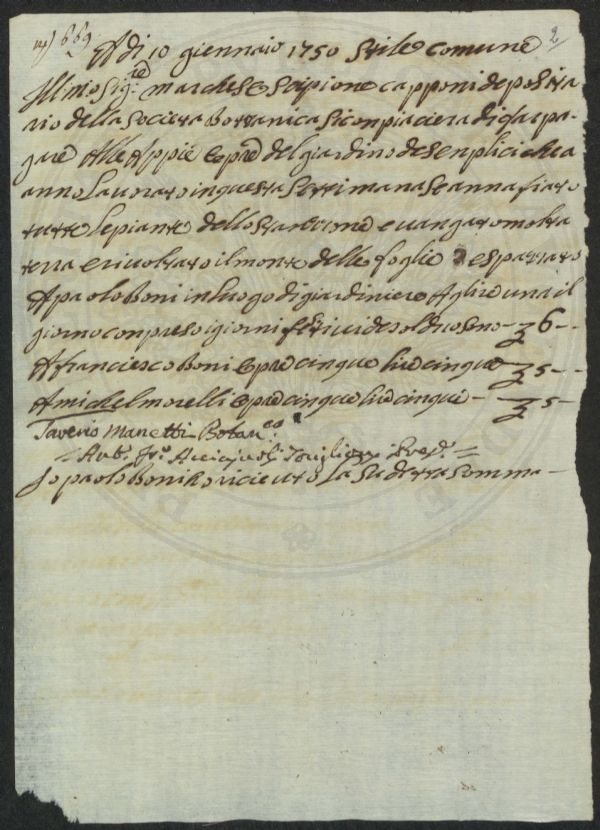 669 2
Adi 10 giennaio 1750 Stile comune
Ill.mo Sig:re marchese Scipione Capponi deposita
rio della Societa Bottanica si conpiaciera di far pa-
gare Alle Appiè Opre del giardino de Senplici che a
anno Lavorato in questa Settimana e anna fiato
tutte Le piante dello Stantione e vangato molta
terra e rivoltato il monte delle foglie e spazzato
A paolo Boni in luogo di giardiniere A lire una il
giorno conpreso i giorni festivi de sol di uso sono - £ 6 - -
A franciesco Boni Opre cinque lire cinque - £ 5 - -
A michel morelli Opre cinque lire cinque - £ 5 -
Saverio Manetti Botan.co
Aut. Fr.o
Io paolo Boni ho riceuto La Sudetta Somma -